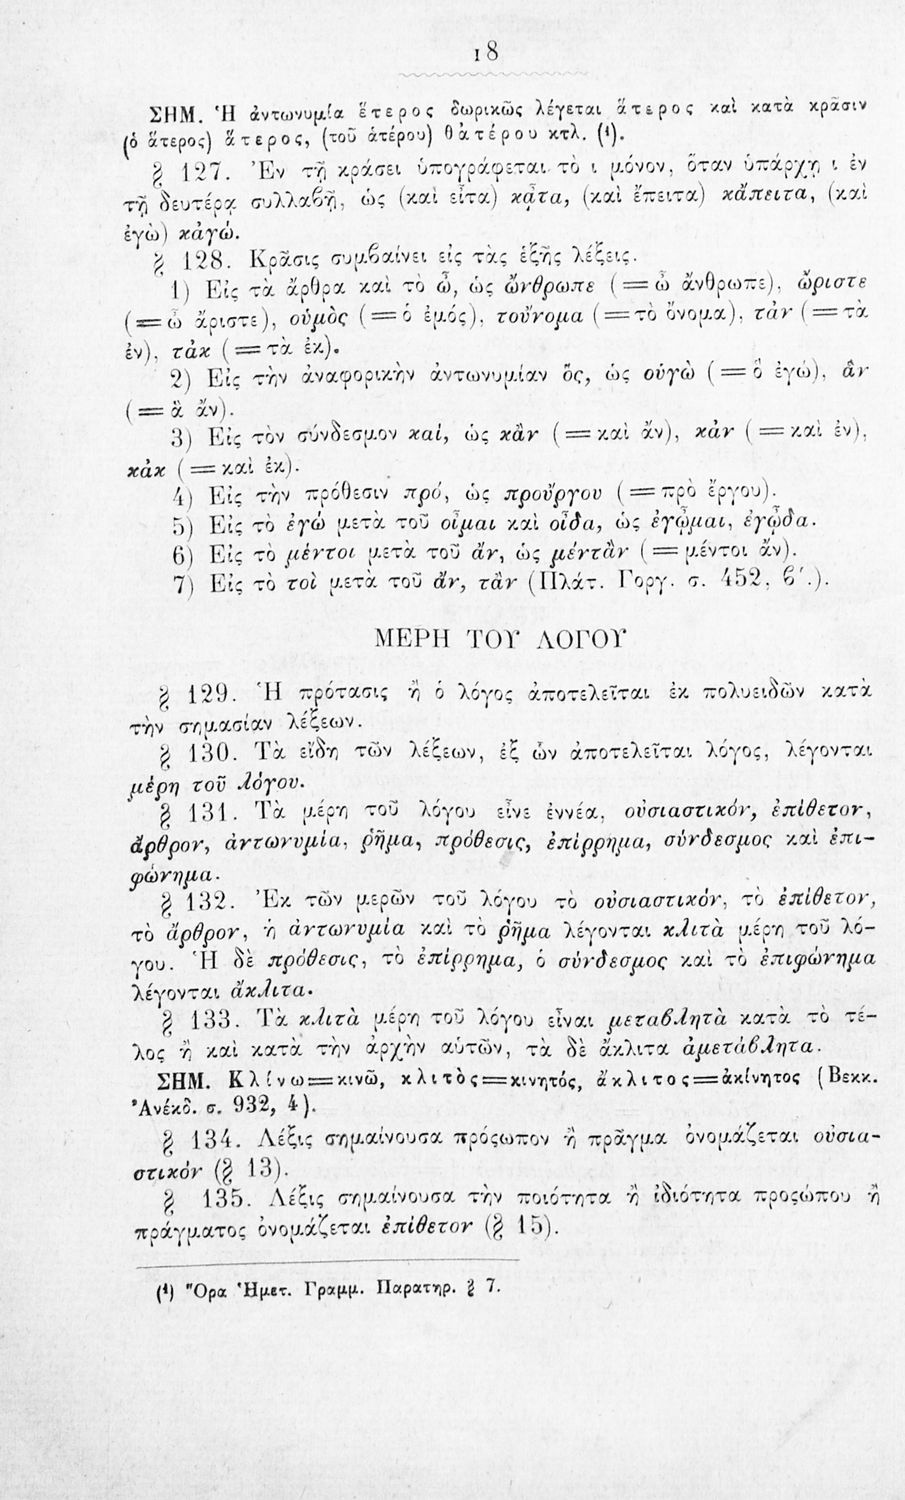 18
ΣΗΜ. Ἡ ἀντωνυμία ἕτερος δωρικῶς λέγεται ἅτερος καὶ κατὰ κρᾶσιν
(ὁ ἅτερος) ἅτερος, (τοῦ ἁτέρου) θἀτέρου κτλ. (¹).
§ 127. Ἐν τῇ κράσει ὑπογράφεται τὸ ι μόνον, ὅταν ὑπάρχῃ ι ἐν
τῇ δευτέρᾳ συλλαβῇ, ὡς (καὶ εἶτα) κᾆτα, (καὶ ἔπειτα) κἄπειτα, (καὶ
ἐγὼ) κἀγώ.
§ 128. Κρᾶσις συμβαίνει εἰς τὰς ἑξῆς λέξεις.
1) Εἰς τὰ ἄρθρα καὶ τὸ ὦ, ὡς ὤνθρωπε (=ὦ ἄνθρωπε), ὤριστε
(=ὦ ἄριστε), οὑμὸς (=ὁ ἐμός), τοὔνομα (=τὸ ὄνομα), τἀν (=τὰ
ἐν), τἀκ (=τὰ ἐκ).
2) Εἰς τὴν ἀναφορικὴν ἀντωνυμίαν ὅς, ὡς οὑγὼ (=ὃ ἐγώ), ἃν
(=ἃ ἄν).
3) Εἰς τὸν σύνδεσμον καί, ὡς κἂν (=καὶ ἄν), κἀν (=καὶ ἐν),
κἀκ (=καὶ ἐκ).
4) Εἰς τὴν πρόθεσιν πρό, ὡς προὔργου (=πρὸ ἔργου).
5) Εἰς τὸ ἐγώ μετὰ τοῦ οἶμαι καὶ οἶδα, ὡς ἐγᾦμαι, ἐγᾦδα.
6) Εἰς τὸ μέντοι μετὰ τοῦ ἄν, ὡς μέντἂν (=μέντοι ἄν).
7) Εἰς τὸ τοὶ μετὰ τοῦ ἄν, τἂν (Πλάτ. Γοργ. σ. 452, β΄.).
ΜΕΡΗ ΤΟΥ ΛΟΓΟΥ
§ 129. Ἡ πρότασις ἢ ὁ λόγος ἀποτελεῖται ἐκ πολυειδῶν κατὰ
τὴν σημασίαν λέξεων.
§ 130. Τὰ εἴδη τῶν λέξεων, ἐξ ὧν ἀποτελεῖται λόγος, λέγονται
μέρη τοῦ λόγου.
§ 131. Τὰ μέρη τοῦ λόγου εἶνε ἐννέα, οὐσιαστικόν, ἐπίθετον,
ἄρθρον, ἀντωνυμία, ῥῆμα, πρόθεσις, ἐπίρρημα, σύνδεσμος καὶ ἐπι-
φώνημα.
§ 132. Ἐκ τῶν μερῶν τοῦ λόγου τὸ οὐσιαστικόν, τὸ ἐπίθετον,
τὸ ἄρθρον, ἡ ἀντωνυμία καὶ τὸ ῥῆμα λέγονται κλιτὰ μέρη τοῦ λό-
γου. Ἡ δὲ πρόθεσις, τὸ ἐπίρρημα, ὁ σύνδεσμος καὶ τὸ ἐπιφώνημα
λέγονται ἄκλιτα.
§ 133. Τὰ κλιτὰ μέρη τοῦ λόγου εἶναι μεταβλητὰ κατὰ τὸ τέ-
λος ἢ καὶ κατὰ τὴν ἀρχὴν αὐτῶν, τὰ δὲ ἄκλιτα ἀμετάβλητα.
ΣΗΜ. Κλίνω=κινῶ, κλιτὸς=κινητός, ἄκλιτος=ἀκίνητος (Βεκκ.
Ἀνέκδ. σ. 932, 4).
§ 134. Λέξις σημαίνουσα πρόςωπον ἢ πρᾶγμα ὀνομάζεται οὐσια-
στικόν (§ 13).
§ 135. Λέξις σημαίνουσα τὴν ποιότητα ἢ ἰδιότητα προςώπου ἢ
πράγματος ὀνομάζεται ἐπίθετον (§ 15).
(¹) Ὅρα Ἡμετ. Γραμμ. Παρατηρ. § 7.